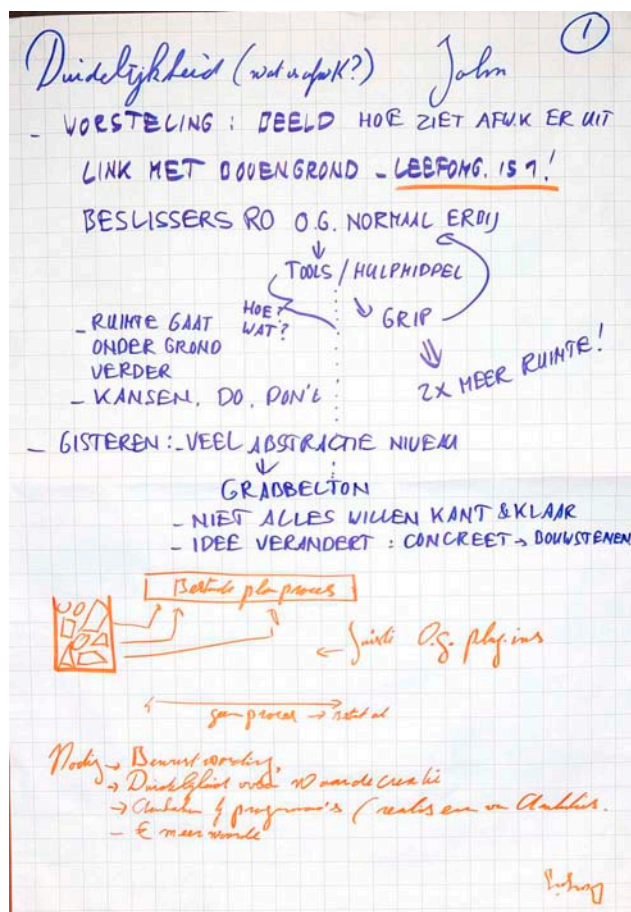 1
Duidelijkheid (wat is afwk?) John
- WORSTELING : BEELD HOE ZIET AFWK ER UIT
LINK MET BOVENGROND - LEEFOMG. IS 1!
BESLISSERS RO O.G. NORMAAL ERBIJ
TOOLS / HULPMIDDEL
HOE?
WAT?
GRIP
- RUIMTE GAAT
ONDER GROND
VERDER
2X MEER RUIMTE!
- KANSEN. DO. DON'T
- GISTEREN : - VEEL ABSTRACTIE NIVEAU
GRABBELTON
- NIET ALLES WILLEN KANT & KLAAR
- IDEE VERANDERT : CONCREET → BOUWSTENEN
Bestande planproces
← Juiste O.g. plug-ins
geen proces → bestaat al
Nodig → Bewustwording,
→ Duidelijkheid over waardecreatie
→ programma's (
- € meerwaarde